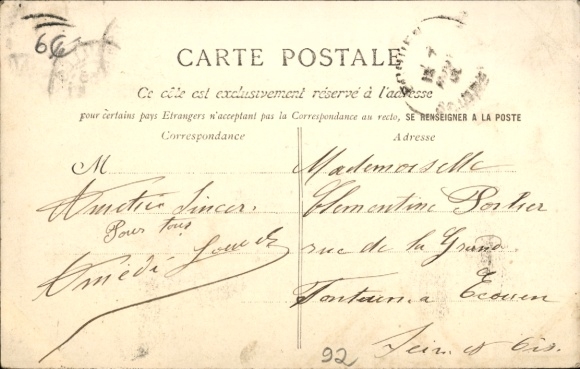 66
CARTE POSTALE
Ce côté est exclusivement réservé à l'adresse
pour certains pays Etrangers n'acceptant pas la Correspondance au recto, SE RENSEIGNER A LA POSTE
Correspondance
Adresse
M
Amitié Sincer.
Pour tous
Amédé
Mademoiselle
Clementine Portier
rue de la Grand
Fontaine a Ecouen
Sein et Ois
92